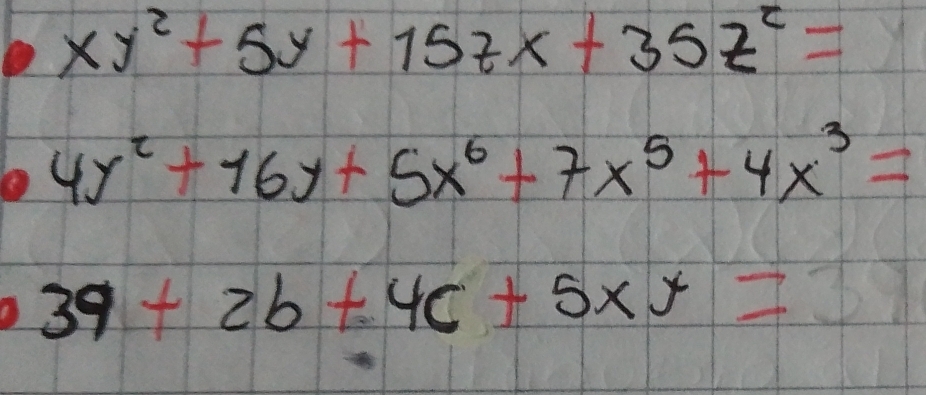 • xy² + 5y + 15zx + 35z² =
• 4y² + 16y + 5x⁶ + 7x⁵ + 4x³ =
• 39 + 2b + 4c + 5xy =